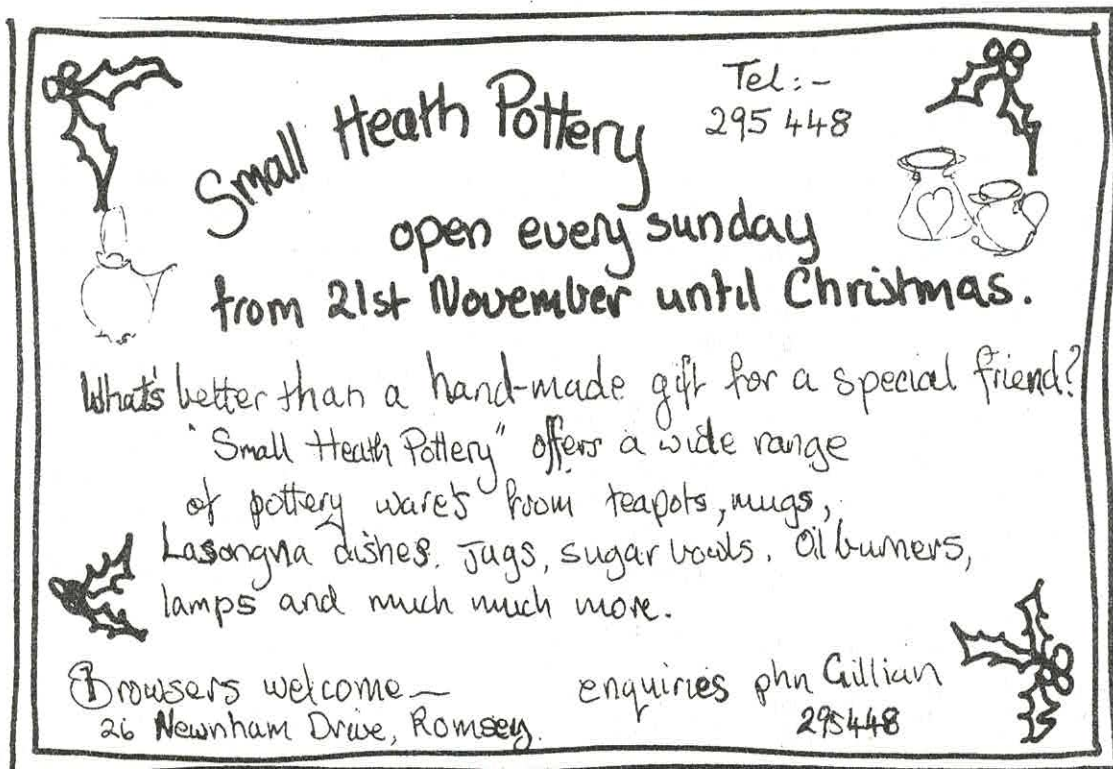 Small Heath Pottery
Tel:-
295 448
open every sunday
from 21st November until Christmas.
What's better than a hand-made gift for a special friend?
"Small Heath Pottery" offers a wide range
of pottery ware's from teapots, mugs,
Lasongna dishes. Jugs, sugar bowls. Oil burners,
lamps and much much more.
Browsers welcome —
26 Newnham Drive, Romsey.
enquiries phn Gillian
295448